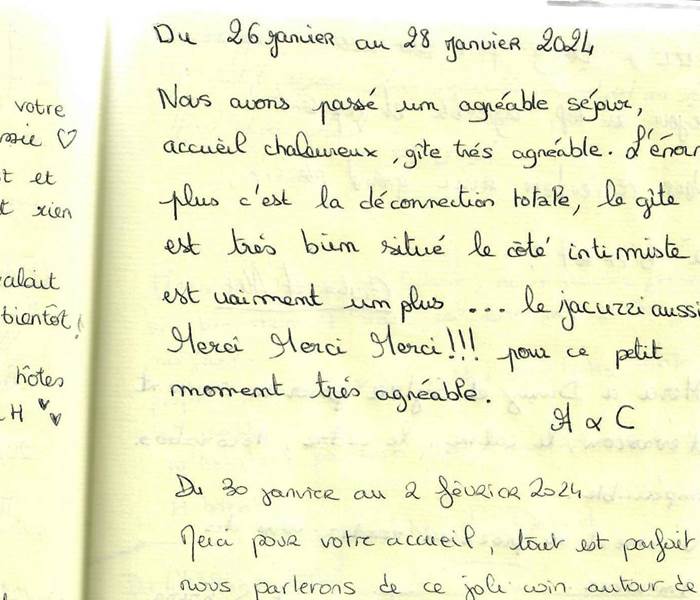 votre
♡
t et
t rien
alait
bientôt!
hôtes
H
Du 26 janvier au 28 Janvier 2024
Nous avons passé um agréable séjour,
accuèil chaleureux, gîte trés agnéable. L'énor
plus c'est la déconnection totale, le gîte
est trés bien situé le côté intimiste
est vaiment um plus ... le jacuzzi aussi
Merci Merci Merci!!! pour ce petit
moment trés agréable.
A & C
Du 30 janvier au 2 février 2024
Merci pour votre accueil, tout est parfait
nous parlerons de ce joli coin autour de